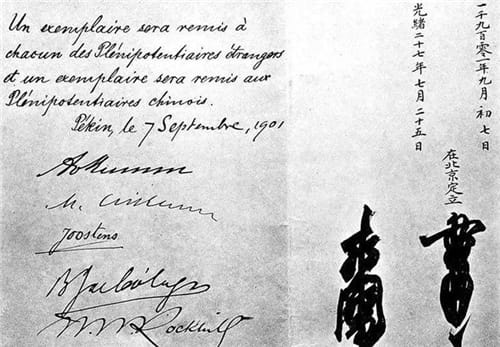 Un exemplaire sera remis à
chacun des Plénipotentiaires étrangers
et un exemplaire sera remis aux
Plénipotentiaires chinois.
Pékin, le 7 Septembre, 1901
Joostens
B. J. de Cólogan
W. W. Rockhill
一千九百零一年九月初七日
光緒二十七年七月二十五日
在北京定立